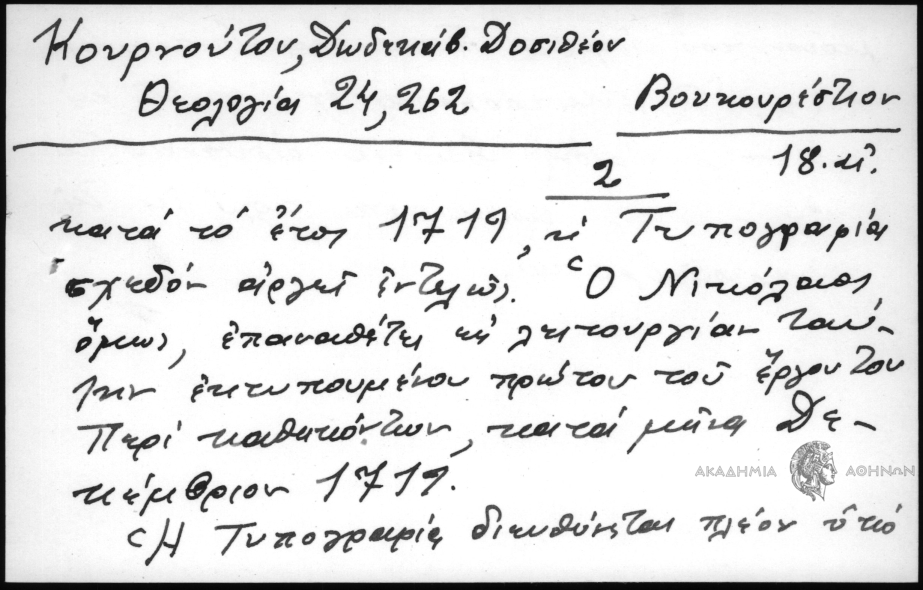 Κουρνούτου, Δωδεκάβ. Δοσιθέου
Θεολογία 24, 262
Βουκουρέστιον
18. αἰ.
2
κατά τό ἔτος 1719, ἡ Τυπογραφία
σχεδόν ἀργεῖ ἐντελῶς. Ὁ Νικόλαος
ὅμως, ἐπαναθέτει εἰς λειτουργίαν ταύ-
την ἐκτυπουμένου πρώτου τοῦ ἔργου του
Περί καθηκόντων, κατά μῆνα Δε-
κέμβριον 1719.
Ἡ Τυπογραφία διευθύνεται πλέον ὑπό
ΑΚΑΔΗΜΙΑ ΑΘΗΝΩΝ